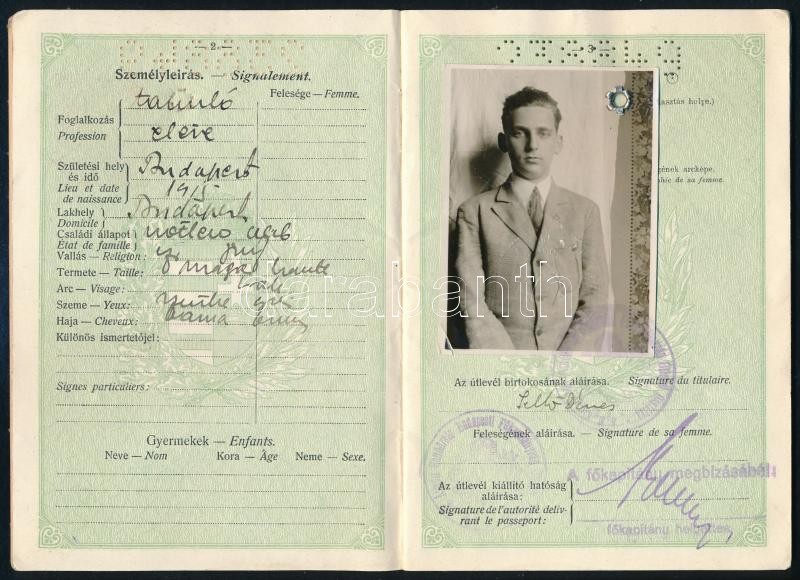 — 2 —
Személyleírás. — Signalement.
Felesége — Femme.
Foglalkozás
Profession
tanuló
élève
Születési hely
és idő
Lieu et date
de naissance
Budapest
1915
Lakhely
Domicile
Budapest
Családi állapot
Etat de famille
nőtlen célib
Vallás — Religion:
Termete — Taille: magas haute
Arc — Visage:
Szeme — Yeux: szürke gris
Haja — Cheveux: barna brun
Különös ismertetőjel:
Signes particuliers:
Gyermekek — Enfants.
Neve — Nom Kora — Âge Neme — Sexe.
— 3 —
asztás helye.)
gének arcképe.
hie de sa femme.
darabanth
Az útlevél birtokosának aláírása. — Signature du titulaire.
Dénes
Feleségének aláírása. — Signature de sa femme.
A főkapitány megbízásából:
Az útlevél kiállító hatóság
aláírása:
Signature de l'autorité deliv-
rant le passeport:
főkapitány helyettes.